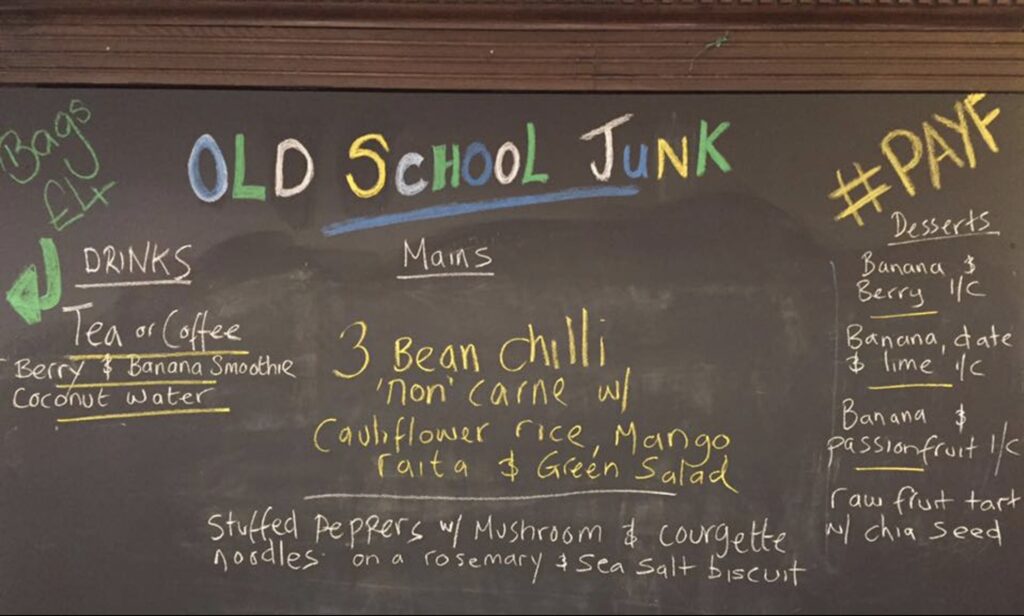 Bags
£4
OLD SCHOOL JUNK
#PAYF
DRINKS
Tea or Coffee
Berry & Banana Smoothie
Coconut water
Mains
3 Bean chilli
'non' carne w/
Cauliflower rice, Mango
raita & Green Salad
Stuffed peppers w/ Mushroom & courgette
noodles on a rosemary & sea salt biscuit
Desserts
Banana &
Berry I/C
Banana, date
& lime I/C
Banana &
passionfruit I/C
raw fruit tart
w/ chia seed